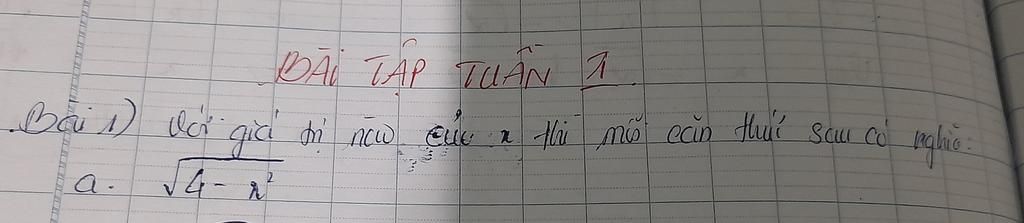 BÀI TẬP TUẦN 1.
Bài 1) Với giá trị nào của x thì mỗi căn thức sau có nghĩa:
a. √4 - x²